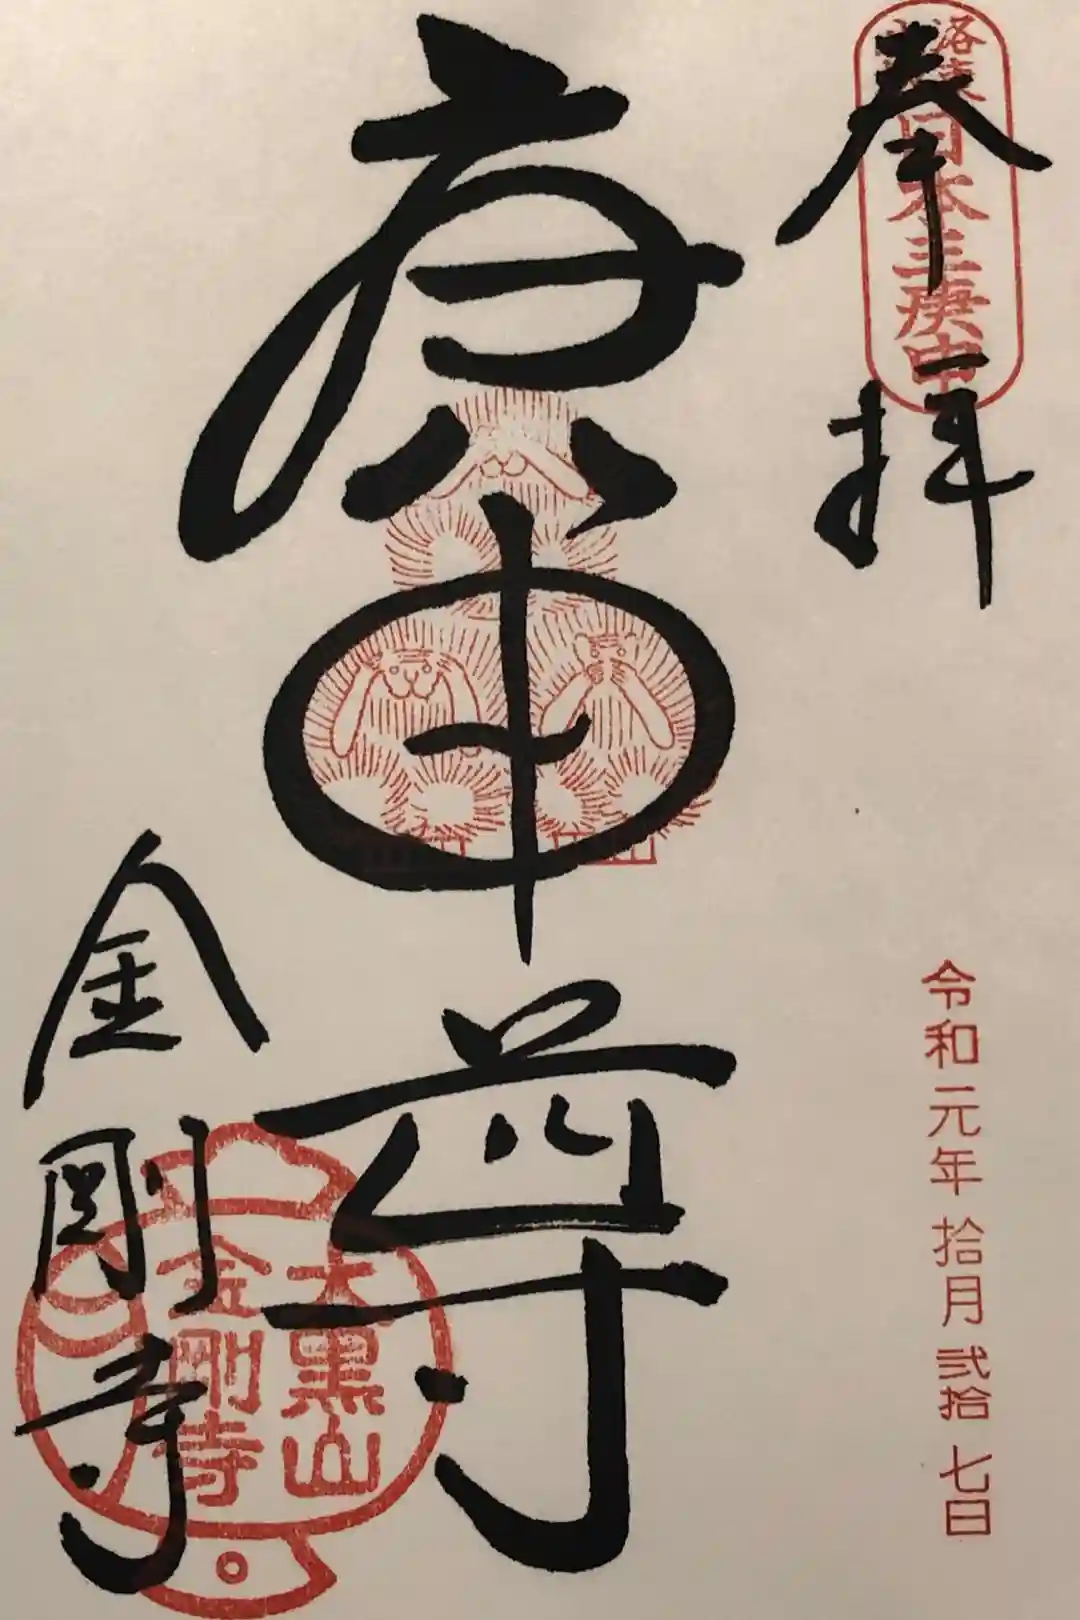 奉拝
日本三庚申
令和元年 拾月 弐拾七日
庚申尊
金剛寺
大黒山
金剛寺